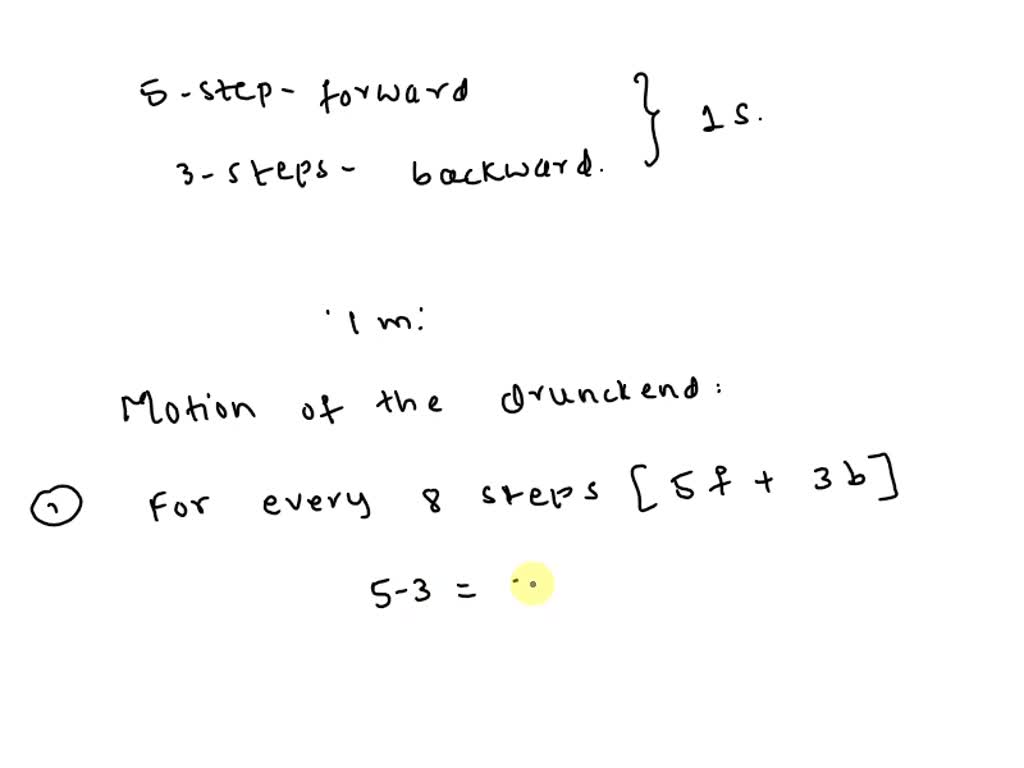 5-step- forward
3-steps- backward. } 1s.
1 m:
Motion of the drunckend:
① For every 8 steps [5f + 3b]
5-3 =